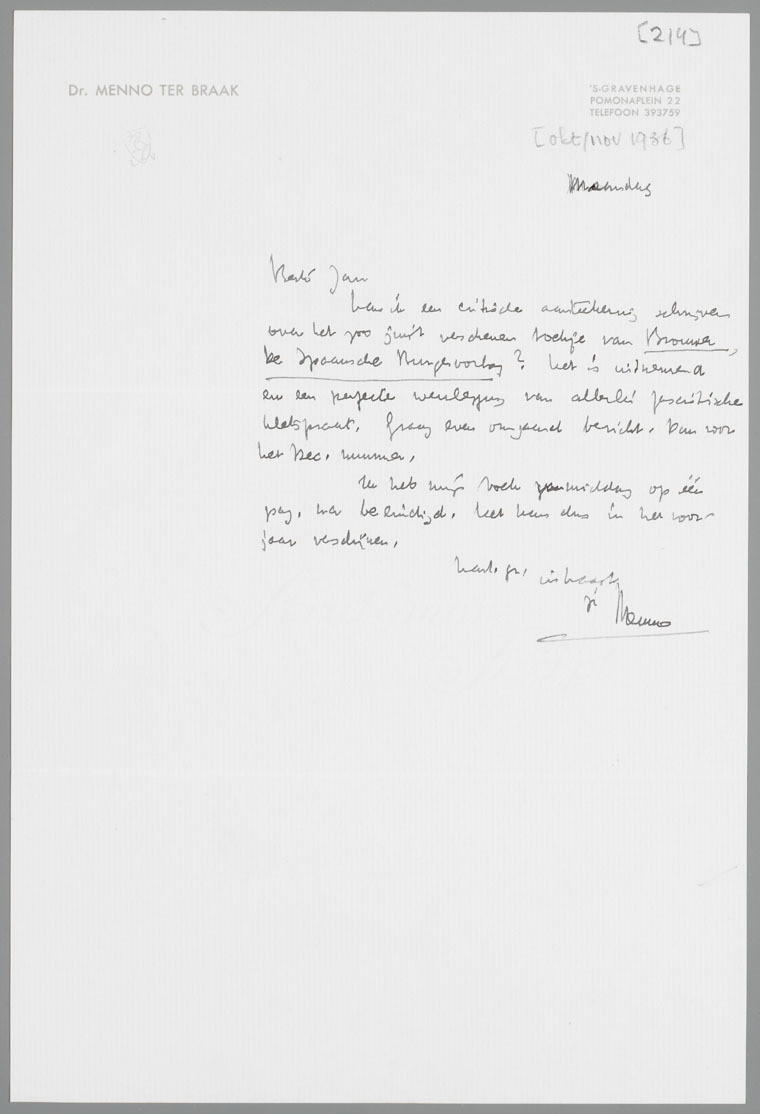 [214]
Dr. MENNO TER BRAAK
'S-GRAVENHAGE
POMONAPLEIN 22
TELEFOON 393759
[okt/nov 1936]
Maandag
Beste Jan
kan ik een critische aanteekening schrijven
over het zoo juist verschenen boekje van Brouwer,
De Spaansche Burgeroorlog? Het is uitnemend
en een perfecte weerlegging van allerlei fascistische
kletspraat. Graag even omgaand bericht. Dan voor
het Dec. nummer.
Ik heb mijn boek vanmiddag op één
pag. na beëindigd. Het kan dus in het voor-
jaar verschijnen.
hart. gr. in haast
je Menno